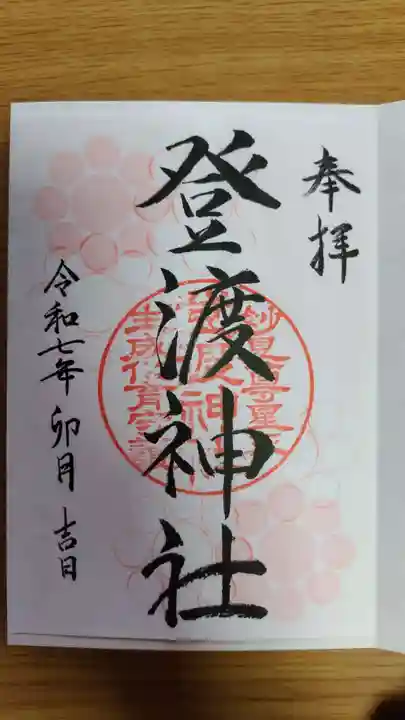 奉拝
登渡神社
令和七年 卯月 吉日